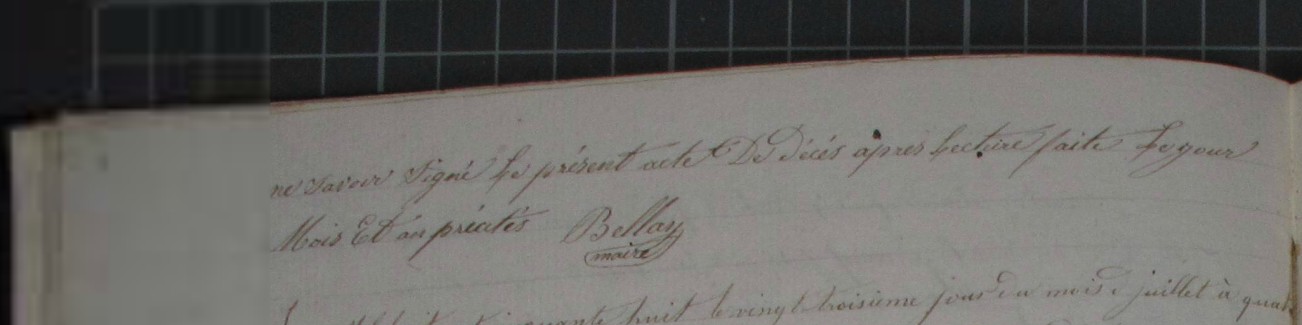 ne savoir Signé Le présent acte De décés après Lecture faite Le jour
Mois Et an préatés Bellay
maire
huit le vingt troisieme jour du mois de juillet à